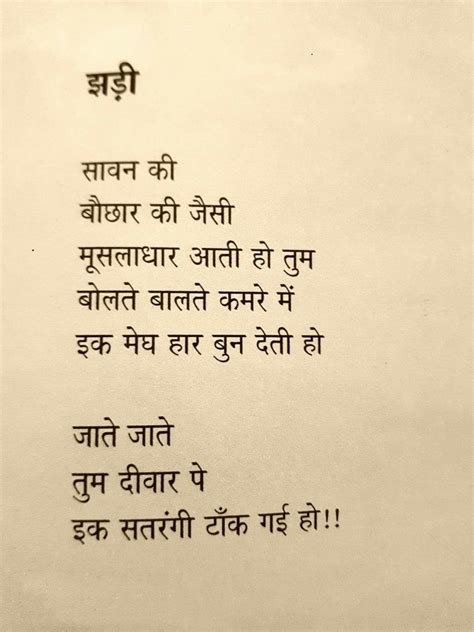 झड़ी
सावन की
बौछार की जैसी
मूसलाधार आती हो तुम
बोलते बालते कमरे में
इक मेघ हार बुन देती हो
जाते जाते
तुम दीवार पे
इक सतरंगी टाँक गई हो!!